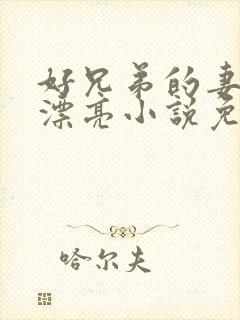 好兄弟的妻
漂亮小说免
哈尔夫